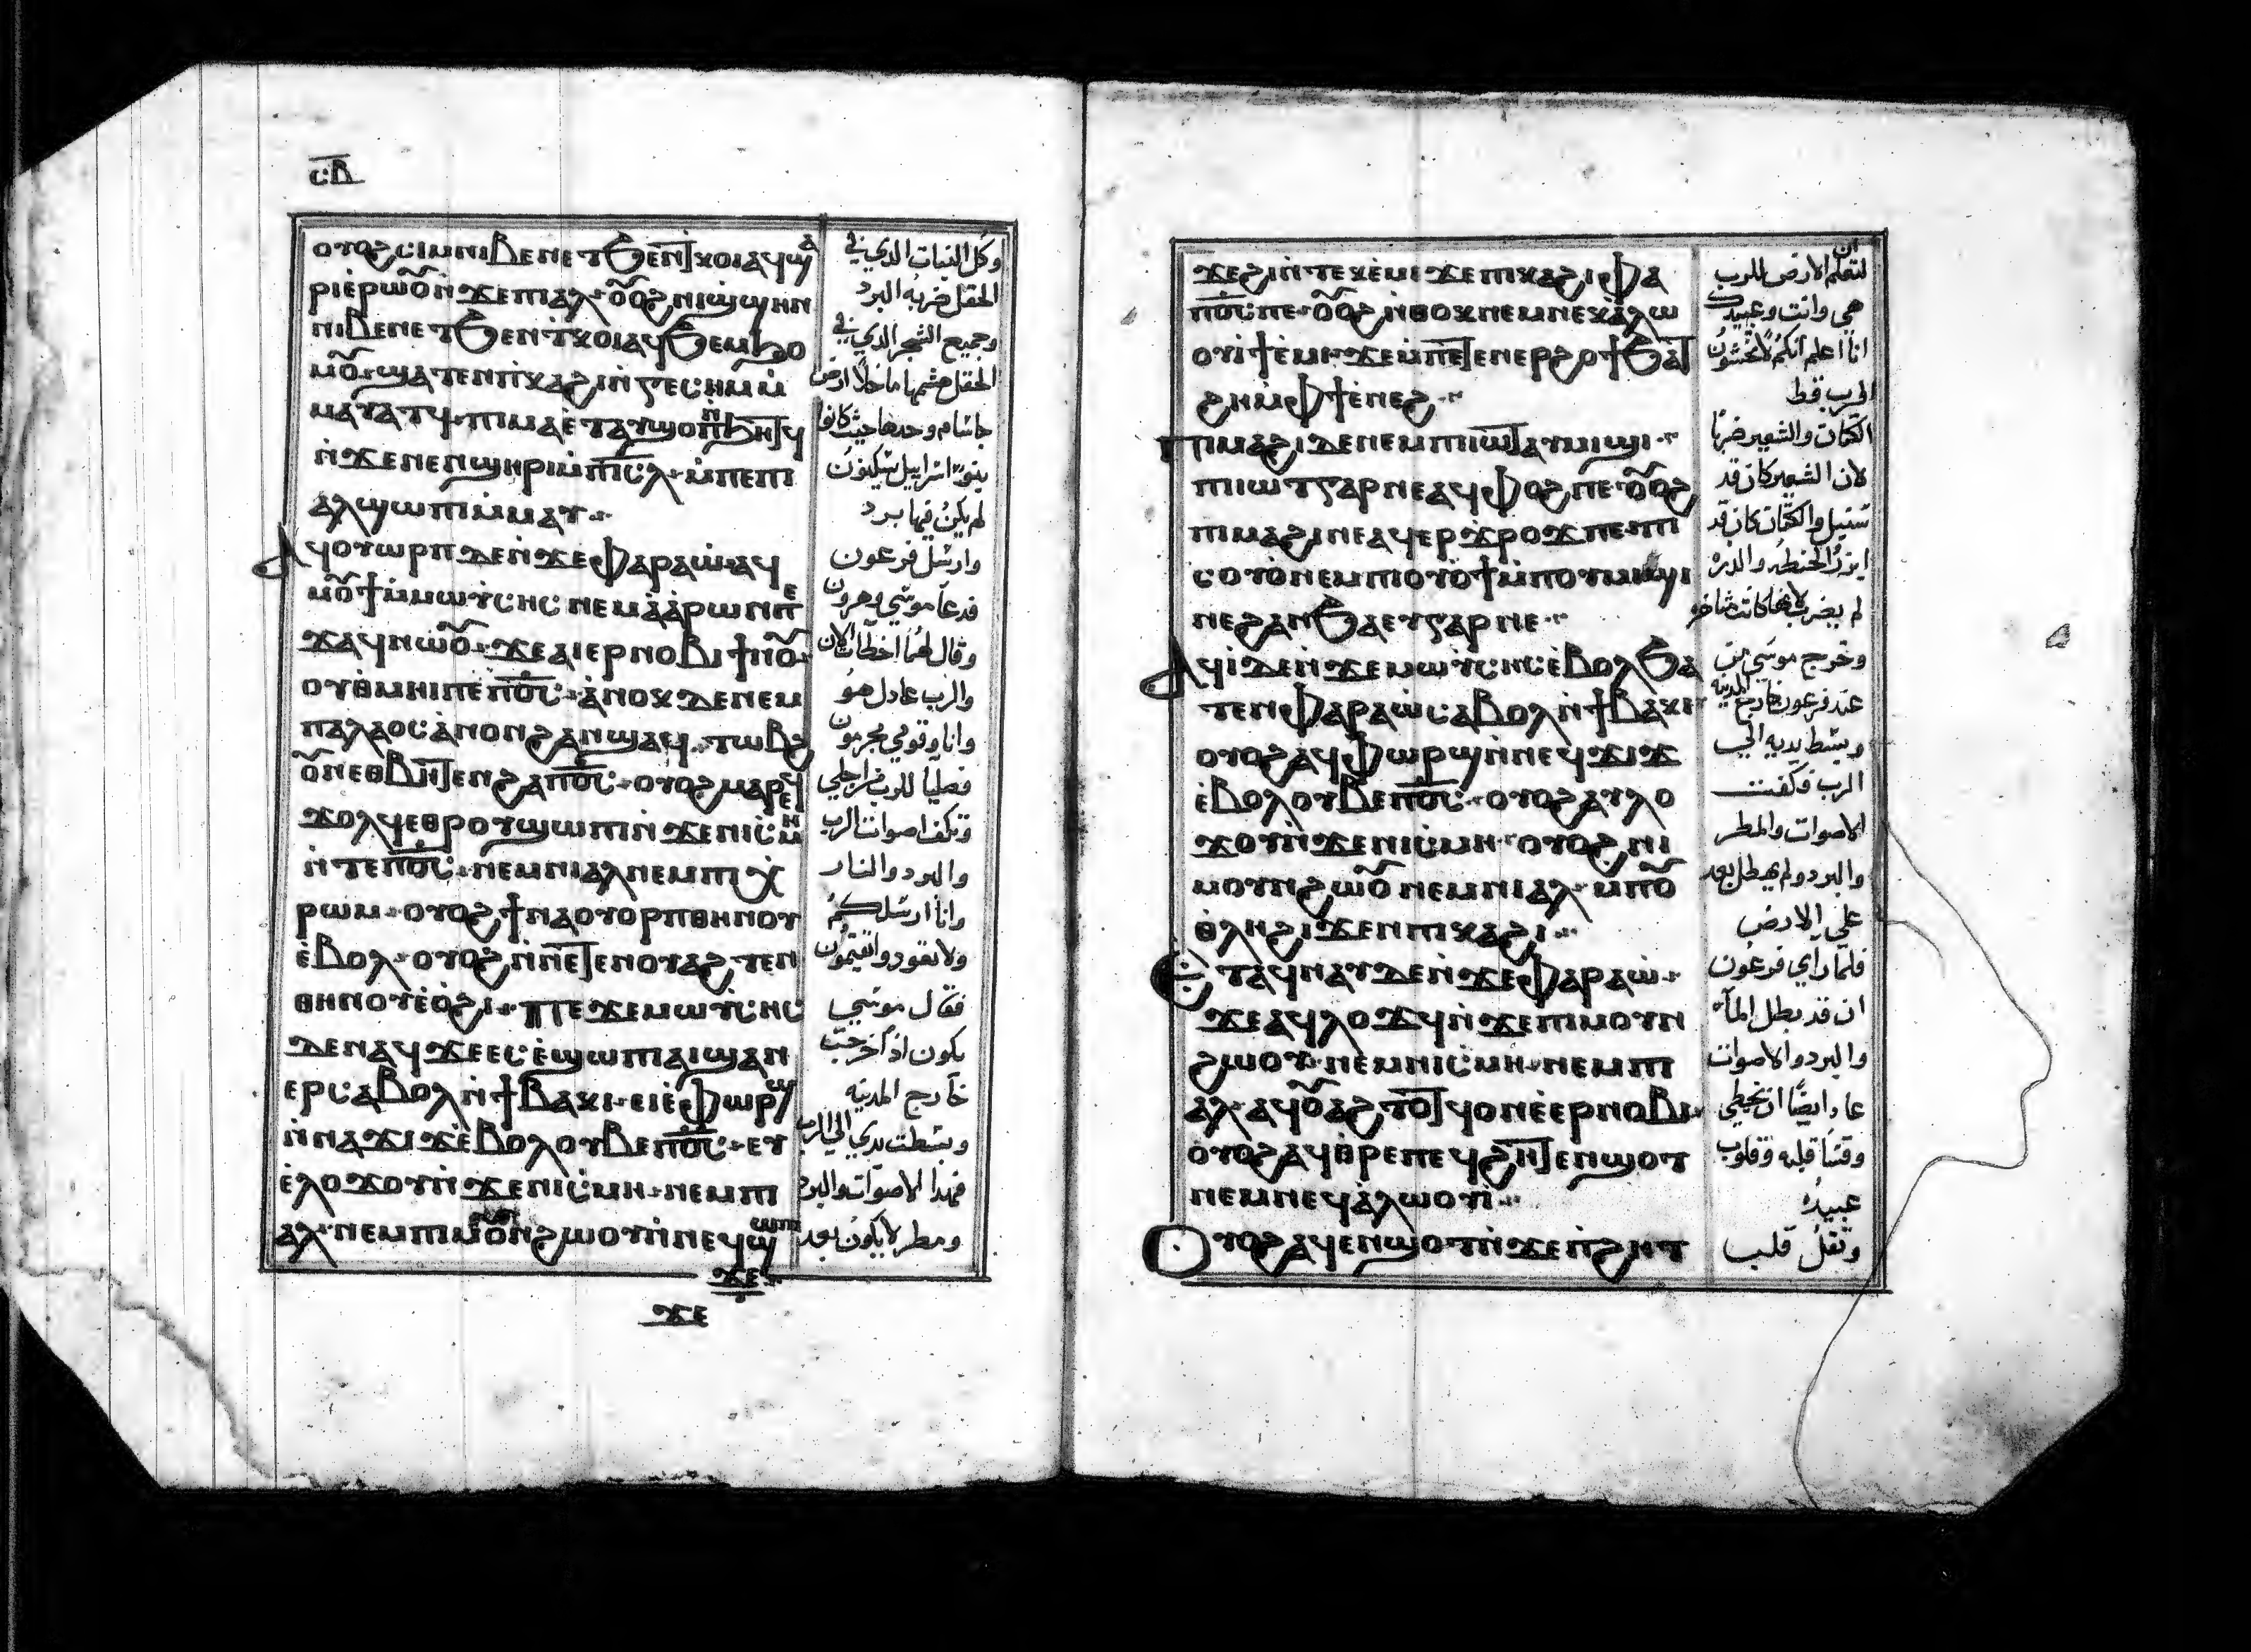 ⲤⲂ
ⲟⲩⲟϩ ⲥⲓⲙ ⲛⲓⲃⲉⲛ ⲉⲧϧⲉⲛ ⲧⲕⲟⲓ ⲁϥϣⲁ
ⲣⲓ ⲉⲣⲱⲟⲩ ⲛϫⲉ ⲡⲓⲁⲗ ⲟⲩⲟϩ ⲛⲓϣϣⲏⲛ
ⲛⲓⲃⲉⲛ ⲉⲧϧⲉⲛ ⲧⲕⲟⲓ ⲁϥϧⲉⲙϧⲟ
ⲙⲟⲩ ϣⲁⲧⲉⲛ ⲡⲕⲁϩⲓ ⲛⲅⲉⲥⲏⲙ ⲙ
ⲙⲁⲩⲁⲧϥ ⲡⲓⲙⲁ ⲉⲧⲁⲩϣⲟⲡ ⲛϧⲏⲧϥ
ⲛϫⲉ ⲛⲉⲛϣⲏⲣⲓ ⲙⲡⲓⲥⲗ ⲙⲡⲉ ⲡⲓ
ⲁⲗ ϣⲱⲡⲓ ⲙⲙⲁⲩ
ⲁϥⲟⲩⲱⲣⲡ ⲇⲉ ⲛϫⲉ ⲫⲁⲣⲁⲱ ⲁϥ
ⲙⲟⲩϯ ⲙⲙⲱⲩⲥⲏⲥ ⲛⲉⲙ ⲁⲁⲣⲱⲛ ⲡⲉ
ϫⲁϥ ⲛⲱⲟⲩ ϫⲉ ⲁⲓⲉⲣⲛⲟⲃⲓ ϯⲛⲟⲩ
ⲟⲩⲑⲙⲏⲓ ⲡⲉ ⲡⲟⲥ ⲁⲛⲟⲕ ⲇⲉ ⲛⲉⲙ
ⲡⲁⲗⲁⲟⲥ ⲁⲛⲟⲛ ϩⲁⲛϣⲁϥⲧ ⲧⲱⲃϩ
ⲟⲩⲛ ⲉⲑⲃⲏⲧⲉⲛ ϩⲁ ⲡⲟⲥ ⲟⲩⲟϩ ⲙⲁⲣⲉϥ
ϫⲟⲗϥ ⲉⲑⲣⲟⲩϣⲱⲡⲓ ⲛϫⲉ ⲛⲓⲥⲙⲏ
ⲛⲧⲉ ⲡⲟⲥ ⲛⲉⲙ ⲛⲓⲁⲗ ⲛⲉⲙ ⲡⲓⲭ
ⲣⲱⲙ ⲟⲩⲟϩ ϯⲛⲁⲟⲩⲟⲣⲡ ⲑⲏⲛⲟⲩ
ⲉⲃⲟⲗ ⲟⲩⲟϩ ⲛⲛⲉⲧⲉⲛⲟⲩⲁϩⲧⲉⲛ
ⲑⲏⲛⲟⲩ ⲉⲟϩⲓ ⲡⲉϫⲉ ⲙⲱⲩⲥⲏⲥ
ⲇⲉ ⲛⲁϥ ϫⲉ ⲉⲥⲉϣⲱⲡ ⲁⲓϣⲁⲛ
ⲉⲣⲥⲁⲃⲟⲗ ⲛϯⲃⲁⲕⲓ ⲉⲓⲉⲫⲱⲣϣ
ⲛⲛⲁϫⲓϫ ⲉⲃⲟⲗ ⲟⲩⲃⲉ ⲡⲟⲥ ⲉⲩ
ⲉⲗⲟϫⲟⲩ ⲛϫⲉ ⲛⲓⲥⲙⲏ ⲛⲉⲙ ⲡⲓ
ⲁⲗ ⲛⲉⲙ ⲡⲓⲙⲟⲩⲛϩⲱⲟⲩ ⲛⲛⲉϥϣⲱⲡⲓ
ϫⲉ
ϫⲉ
وكل النبات الدي في
الحقل ضربه البرد
وجميع الشجر الدي في
الحقل هشمها ما خلا ارض
جاشام وحدها حيث كانوا
بنو اسراييل يسكنون
لم يكن فيها برد
وارسل فرعون
فدعا موسي وهرون
وقال لهما اخطات الان
والرب عادل هو
وانا وقومي مجرمون
فصليا للرب من اجلي
وتكف اصوات الرب
والبرد والنار
وانا ارسلكم
ولا تعودوا تقيمون
فقال موسي
يكون اذا خرجت
خارج المدينه
وبسطت يدي الي الرب
فتهدا الاصوات والبرد
ومطر لا يكون بعد
ϫⲉ ϩⲓⲛⲧⲉⲕⲉⲙⲓ ϫⲉ ⲡⲕⲁϩⲓ ⲫⲁ
ⲡⲟⲥ ⲡⲉ ⲟⲩⲟϩ ⲛⲑⲟⲕ ⲛⲉⲙ ⲛⲉⲕⲁⲗⲱ
ⲟⲩⲓ ϯⲉⲙⲓ ϫⲉ ⲙⲡⲉⲧⲉⲛⲉⲣϩⲟϯ ϧⲁⲧ
ϩⲏ ⲙⲫϯ ⲉⲛⲉϩ
ⲡⲓⲙⲁϩⲓ ⲇⲉ ⲛⲉⲙ ⲡⲓⲓⲱⲧ ⲁⲩⲙⲓϣⲓ
ⲡⲓⲓⲱⲧ ⲅⲁⲣ ⲛⲉⲁϥⲫⲟϩ ⲡⲉ ⲟⲩⲟϩ
ⲡⲓⲙⲁϩⲓ ⲛⲉⲁϥⲉⲣϫⲣⲟϫ ⲡⲉ ⲡⲓ
ⲥⲟⲩⲟ ⲛⲉⲙ ⲡⲓⲟⲩⲟϯ ⲙⲡⲟⲩⲙⲓϣⲓ
ⲛⲉϩⲁⲛϧⲁⲉⲩ ⲅⲁⲣ ⲛⲉ
ⲁϥⲓ ⲇⲉ ⲛϫⲉ ⲙⲱⲩⲥⲏⲥ ⲉⲃⲟⲗ ϧⲁ
ⲧⲉⲛ ⲫⲁⲣⲁⲱ ⲥⲁⲃⲟⲗ ⲛϯⲃⲁⲕⲓ
ⲟⲩⲟϩ ⲁϥⲫⲱⲣϣ ⲛⲛⲉϥϫⲓϫ
ⲉⲃⲟⲗ ⲟⲩⲃⲉ ⲡⲟⲥ ⲟⲩⲟϩ ⲁⲩⲗⲟ
ϫⲟⲩ ⲛϫⲉ ⲛⲓⲥⲙⲏ ⲟⲩⲟϩ ⲛⲓ
ⲙⲟⲩⲛϩⲱⲟⲩ ⲛⲉⲙ ⲛⲓⲁⲗ ⲙⲡⲟⲩ
ⲑⲗⲏ ϩⲓϫⲉⲛ ⲡⲓⲕⲁϩⲓ
ⲉⲧⲁϥⲛⲁⲩ ⲇⲉ ⲛϫⲉ ⲫⲁⲣⲁⲱ
ϫⲉ ⲁϥⲗⲟϫϥ ⲛϫⲉ ⲡⲓⲙⲟⲩⲛ
ϩⲱⲟⲩ ⲛⲉⲙ ⲛⲓⲥⲙⲏ ⲛⲉⲙ ⲡⲓ
ⲁⲗ ⲁϥⲟⲩⲁϩⲧⲟⲧϥ ⲟⲛ ⲉⲉⲣⲛⲟⲃⲓ
ⲟⲩⲟϩ ⲁϥⲑⲣⲉ ⲡⲉϥϩⲏⲧ ⲉⲛϣⲟⲧ
ⲛⲉⲙ ⲛⲉϥⲁⲗⲱⲟⲩⲓ
ⲟⲩⲟϩ ⲁϥⲉⲛϣⲟⲧ ⲛϫⲉ ⲡϩⲏⲧ
لتعلم ان الارض للرب
هي وانت وعبيدك
انا اعلم انكم لا تخشون
الرب قط
الكتان والشعير ضربا
لان الشعير كان قد
سنبل والكتان كان قد
ابزر الحنطه والذره
لم يضرب لانها كانت متاخره
وخرج موسي من
عند فرعون خارج المدينه
وبسط يديه الي
الرب فكفت
الاصوات والمطر
والبرد ولم يهطل بعد
علي الارض
فلما راي فرعون
ان قد بطل الما
والبرد والاصوات
عاد ايضا ان يخطي
وقسا قلبه وقلوب
عبيده
وثقل قلب